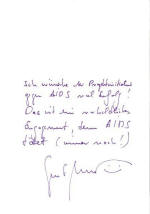 Ich wünsche der Projektinitiative
gegen AIDS viel Erfolg!
Das ist ein vorbildliches
Engagement, denn AIDS
tötet (immer noch!)